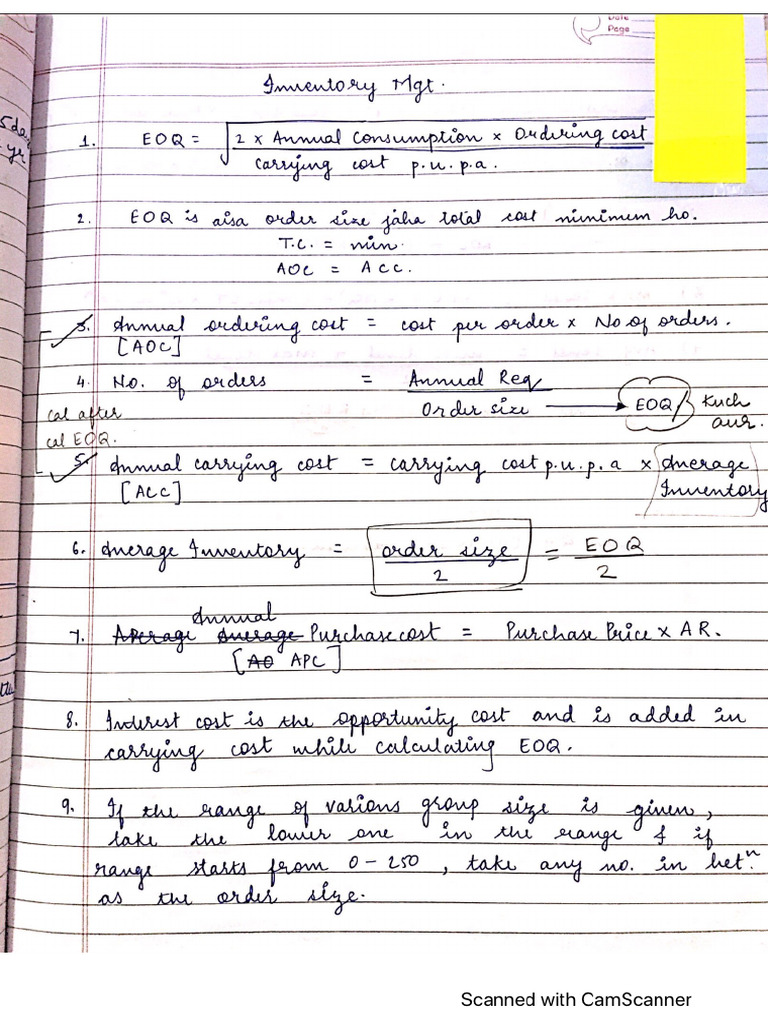 Date
Page
Inventory Mgt.
5 da
yr
1. EOQ = √ 2 x Annual Consumption x Ordering cost
carrying cost p.u.p.a.
2. EOQ is aisa order size jaha total cost minimum ho.
T.C. = min.
AOC = ACC.
3. Annual ordering cost = cost per order x No of orders.
[AOC]
4. No. of orders = Annual Req
Order size → EOQ/ kuch aur.
cal after
cal EOQ.
5. Annual carrying cost = carrying cost p.u.p.a x Average
[ACC] Inventory
6. Average Inventory = order size / 2 = EOQ / 2
Annual
7. Average Average Purchase cost = Purchase Price x AR.
[AO APC]
8. Interest cost is the opportunity cost and is added in
carrying cost while calculating EOQ.
9. If the range of various group size is given,
take the lower one in the range & if
range starts from 0-250, take any no. in betⁿ.
as the order size.
Scanned with CamScanner